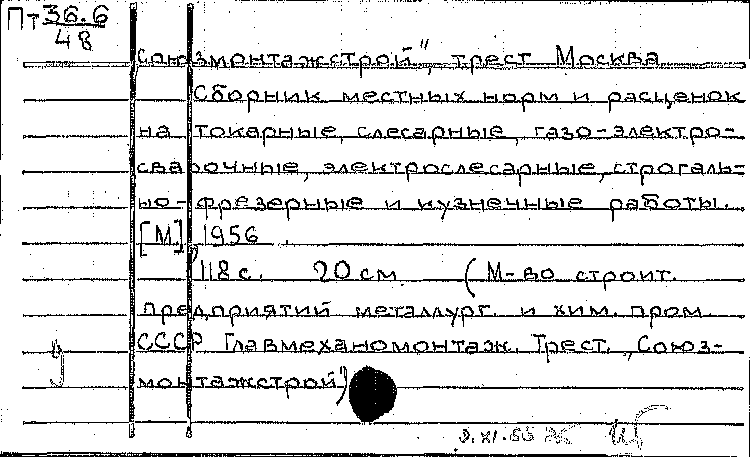 Пт 36.6
48
союзмонтажстрой", трест Москва
Сборник местных норм и расценок
на токарные, слесарные, газо-электро-
сварочные, электрослесарные, строгаль-
но-фрезерные и кузнечные работы.
[М.], 1956.
118 с. 20 см. (М-во строит.
предприятий металлург. и хим. пром.
СССР Главмеханомонтаж. Трест. „Союз-
монтажстрой")